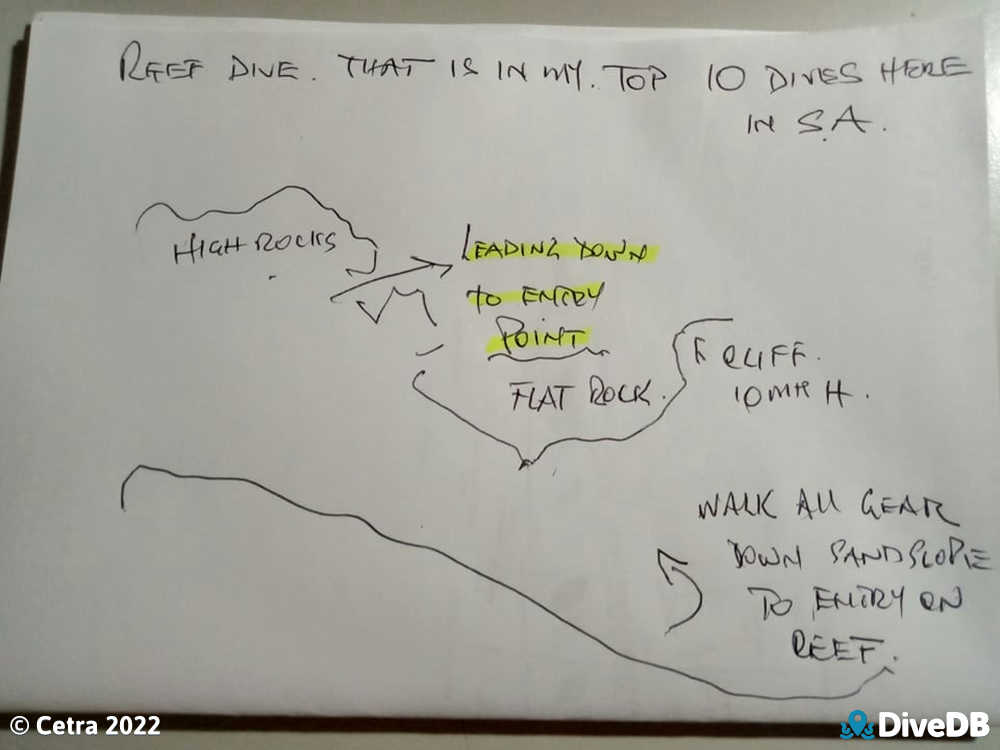 REEF DIVE. THAT IS IN MY. TOP 10 DIVES HERE
IN S.A.
HIGH ROCKS
LEADING DOWN
TO ENTRY
POINT
FLAT ROCK.
CLIFF.
10MTR H.
WALK ALL GEAR
DOWN SANDSLOPE
TO ENTRY ON
REEF.
© Cetra 2022
DiveDB